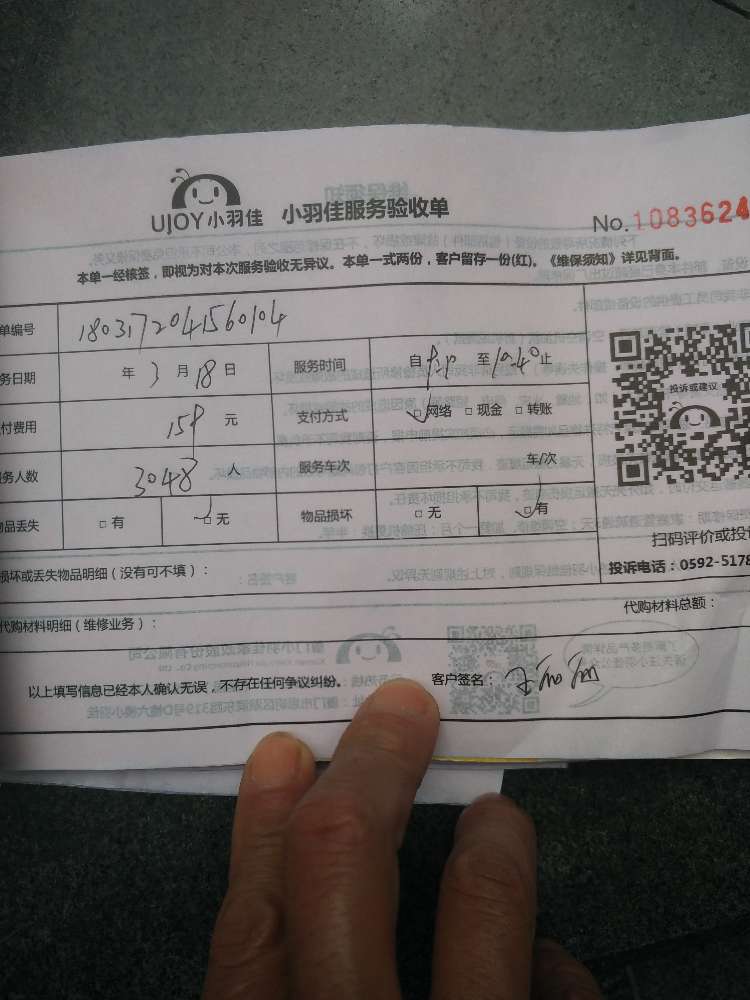 UJOY小羽佳 小羽佳服务验收单
No.1083624
本单一经核签，即视为对本次服务验收无异议。本单一式两份，客户留存一份(红)。《维保须知》详见背面。
单编号 1803172041560104
务日期 年 3月18日 服务时间 自 至 止
付费用 158 元 支付方式 □网络 □现金 □转账
服务人数 3048 人 服务车次 车/次
物品丢失 □有 □无 物品损坏 □无 □有
投诉或建议
扫码评价或投诉
投诉电话：0592-5178
损坏或丢失物品明细（没有可不填）：
代购材料明细（维修业务）： 代购材料总额：
以上填写信息已经本人确认无误，不存在任何争议纠纷。 客户签名：